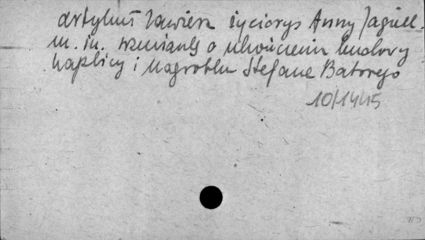 Artykuł zawiera życiorys Anny Jagiell.
m. in. wzmiankę o ukończeniu budowy
kaplicy i nagrobku Stefana Batorego
10/1445